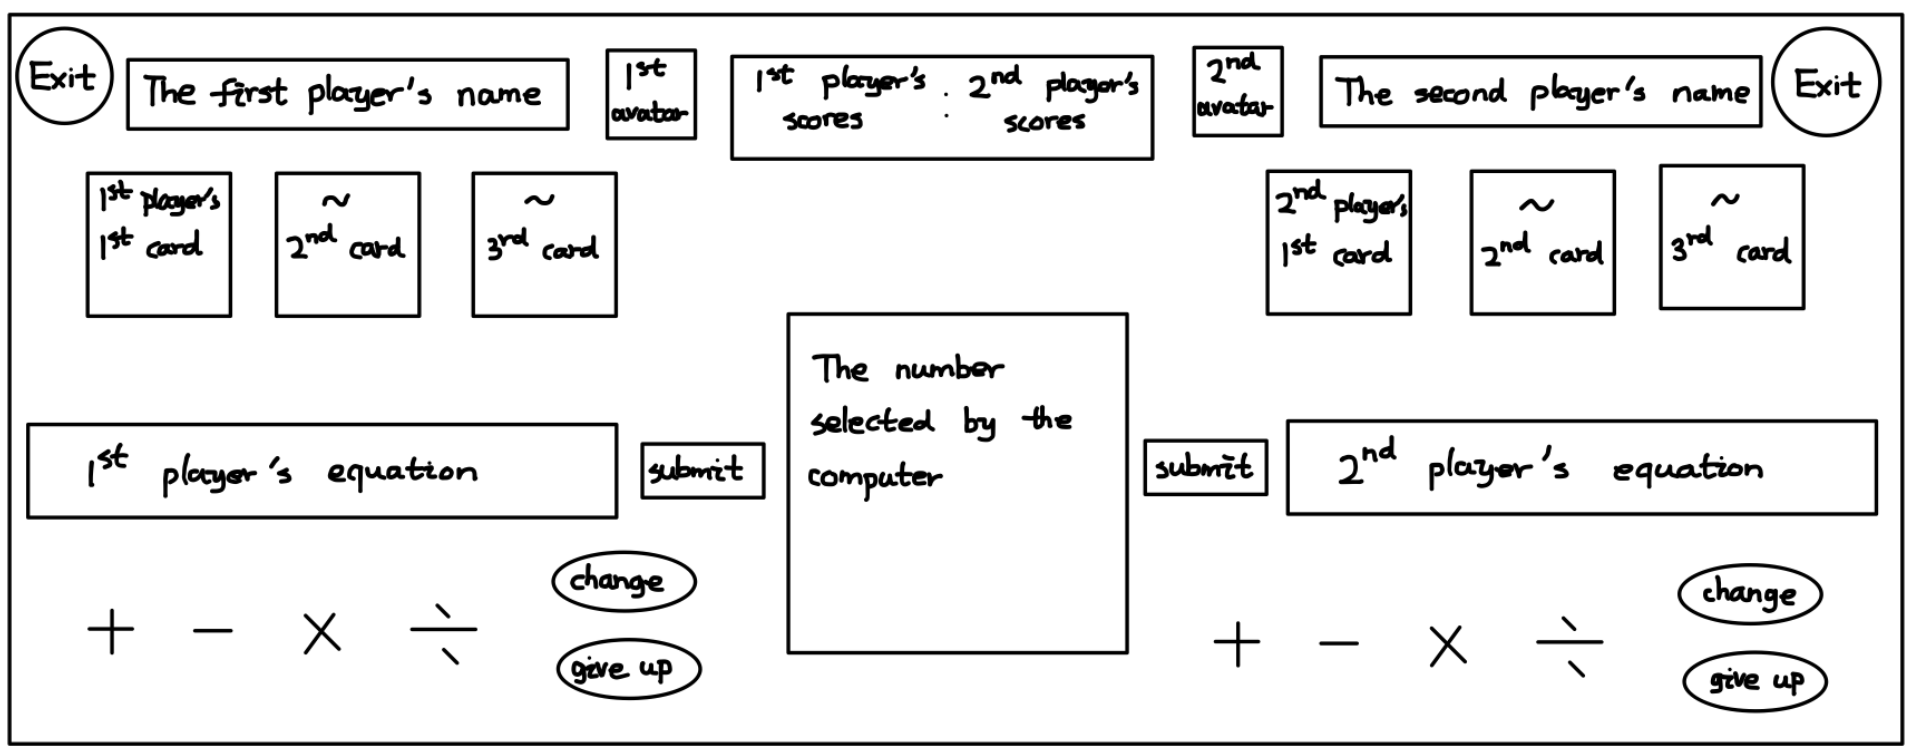 Exit
The first player's name
1st
avatar
1st player's : 2nd player's
scores scores
2nd
avatar
The second player's name
Exit
1st player's
1st card
~
2nd card
~
3rd card
2nd player's
1st card
~
2nd card
~
3rd card
The number
selected by the
computer
1st player's equation
submit
submit
2nd player's equation
+ - × ÷
change
give up
+ - × ÷
change
give up